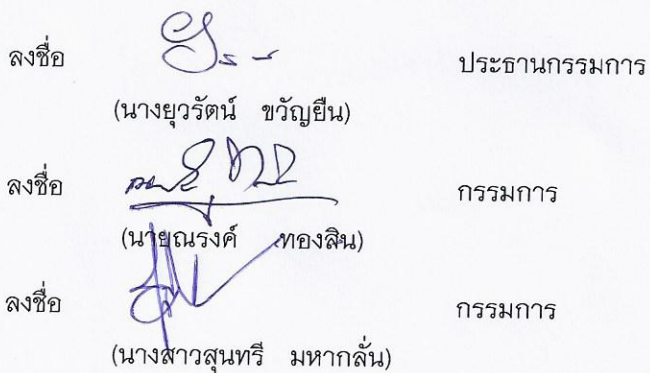 ลงชื่อ ประธานกรรมการ
(นางยุวรัตน์ ขวัญยืน)
ลงชื่อ กรรมการ
(นายณรงค์ ทองสิน)
ลงชื่อ กรรมการ
(นางสาวสุนทรี มหากลั่น)